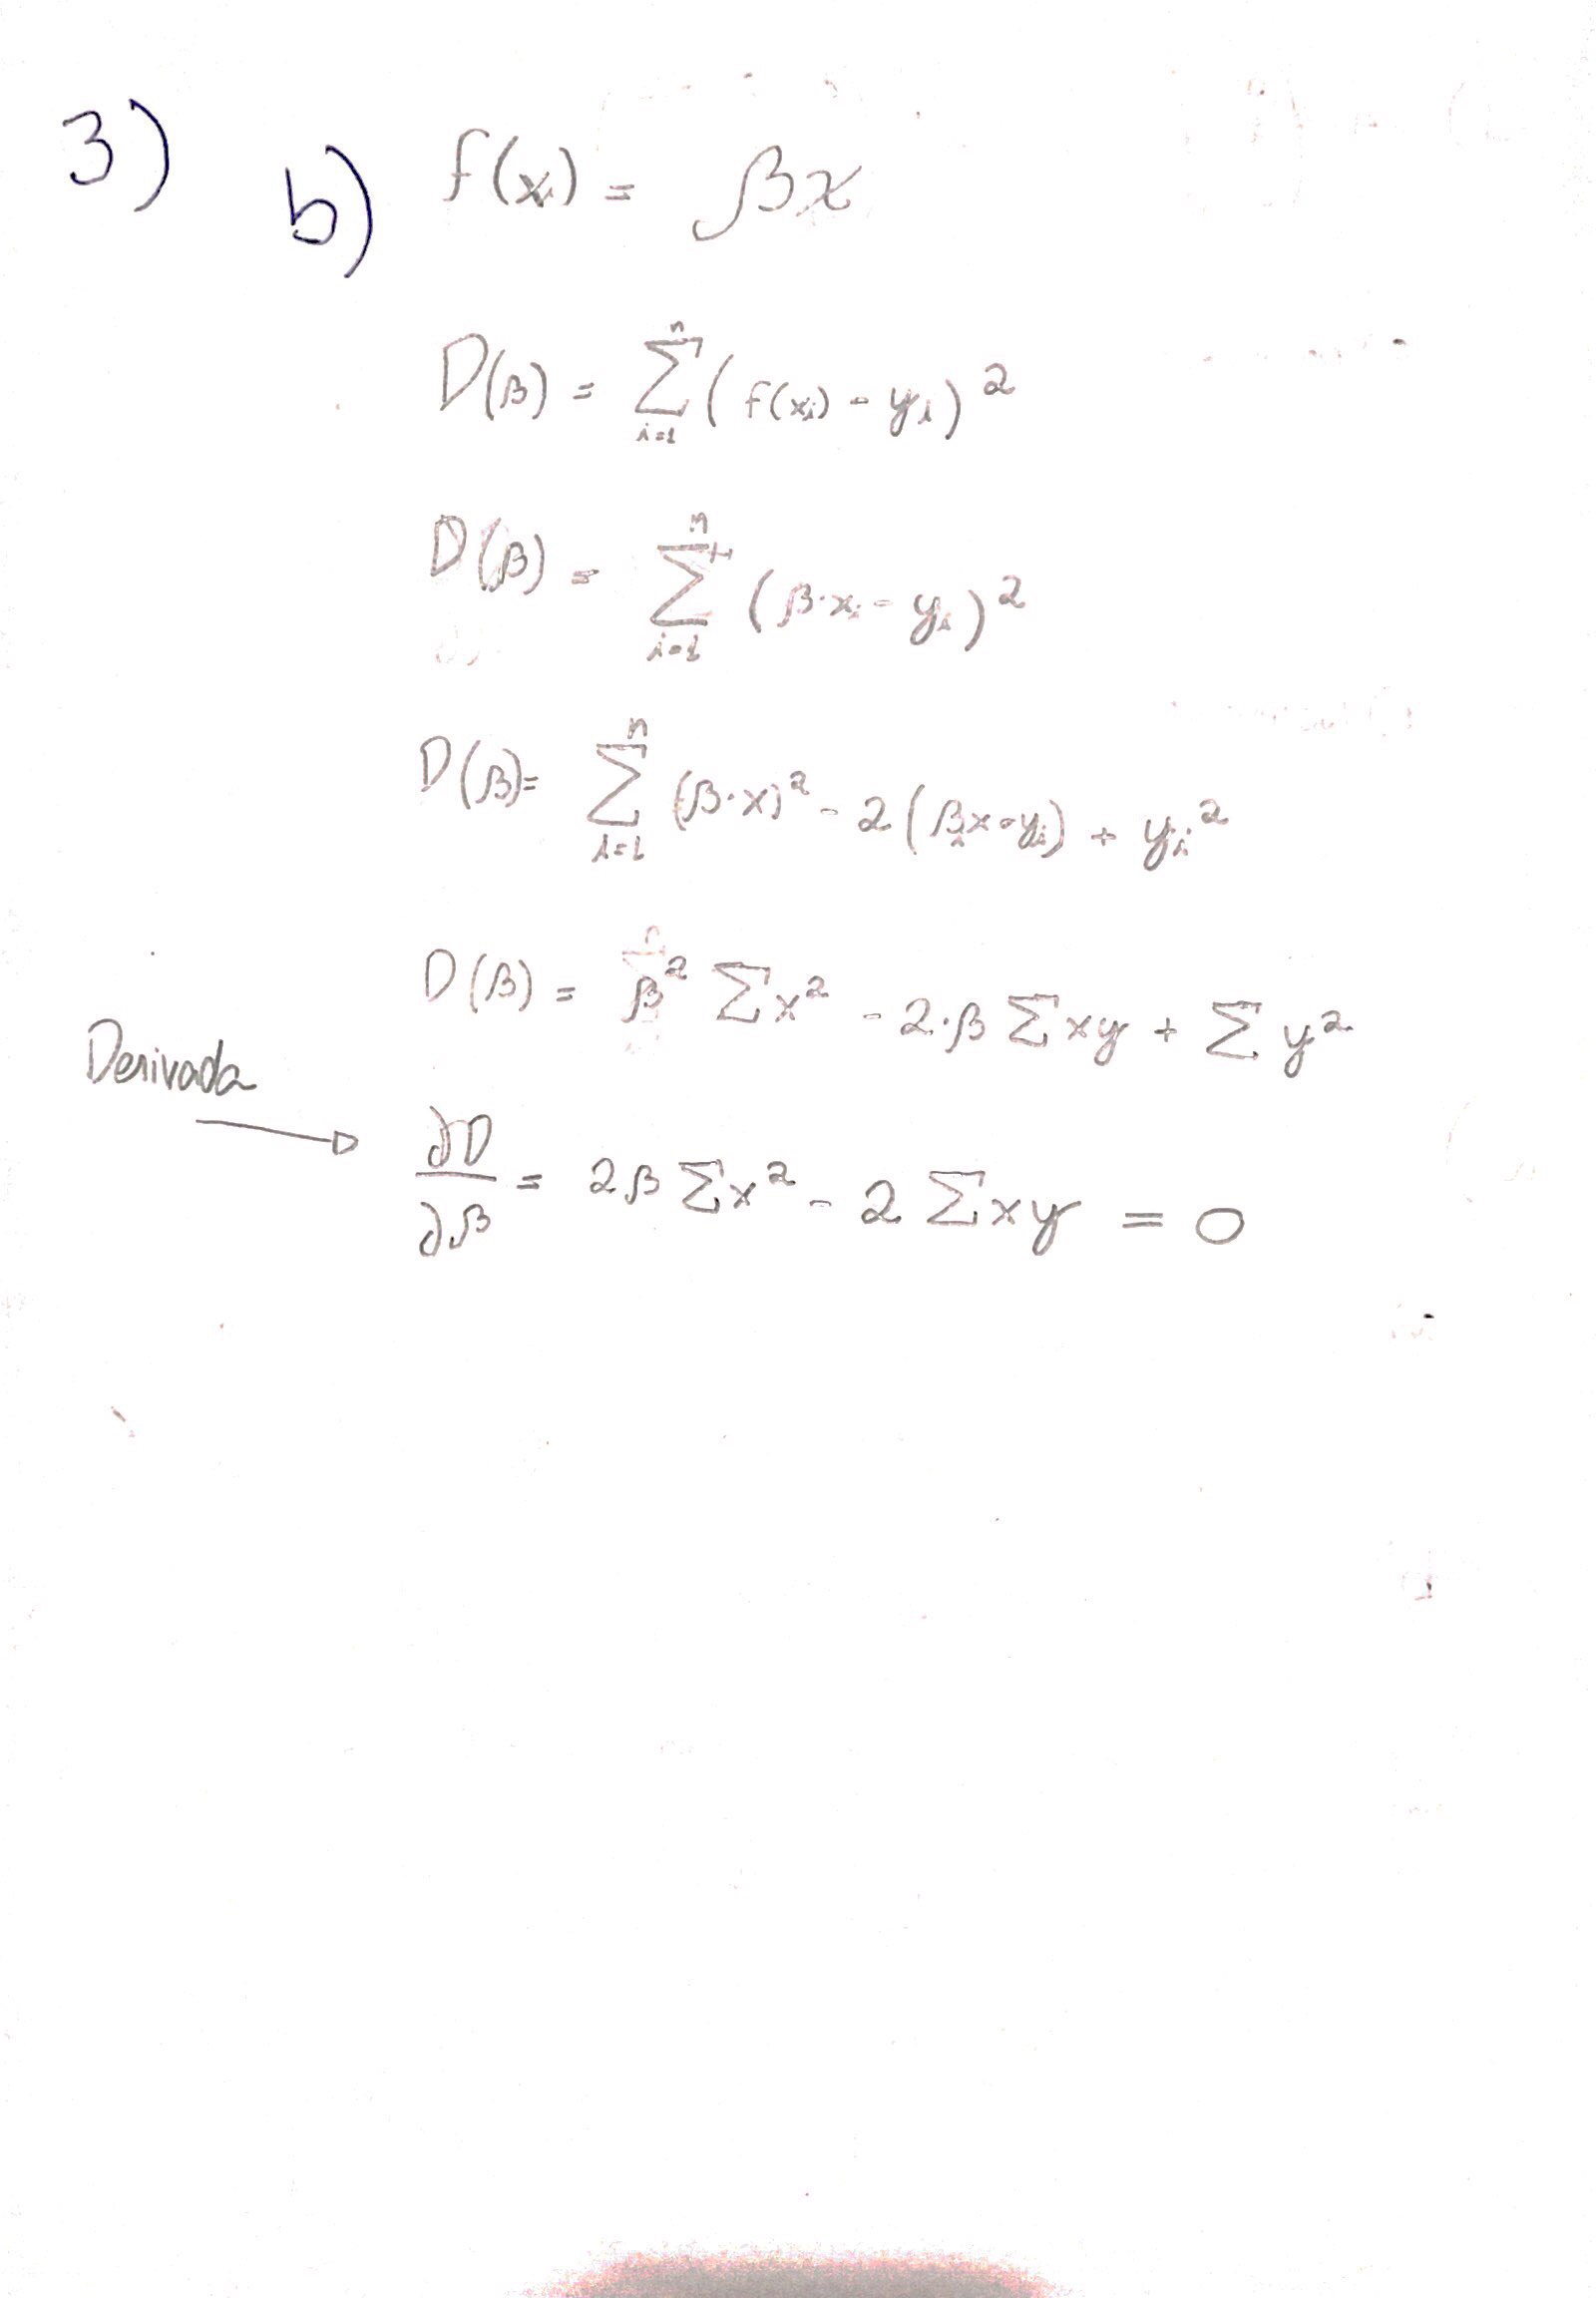 3) b) f(xi) = βx
D(β) = Σ_{i=1}^{n} (f(xi) - yi)²
D(β) = Σ_{i=1}^{n} (β·xi - yi)²
D(β) = Σ_{i=1}^{n} (β·x)² - 2(βix·yi) + yi²
D(β) = β² Σx² - 2·β Σxy + Σy²
Derivada
∂D/∂β = 2β Σx² - 2 Σxy = 0